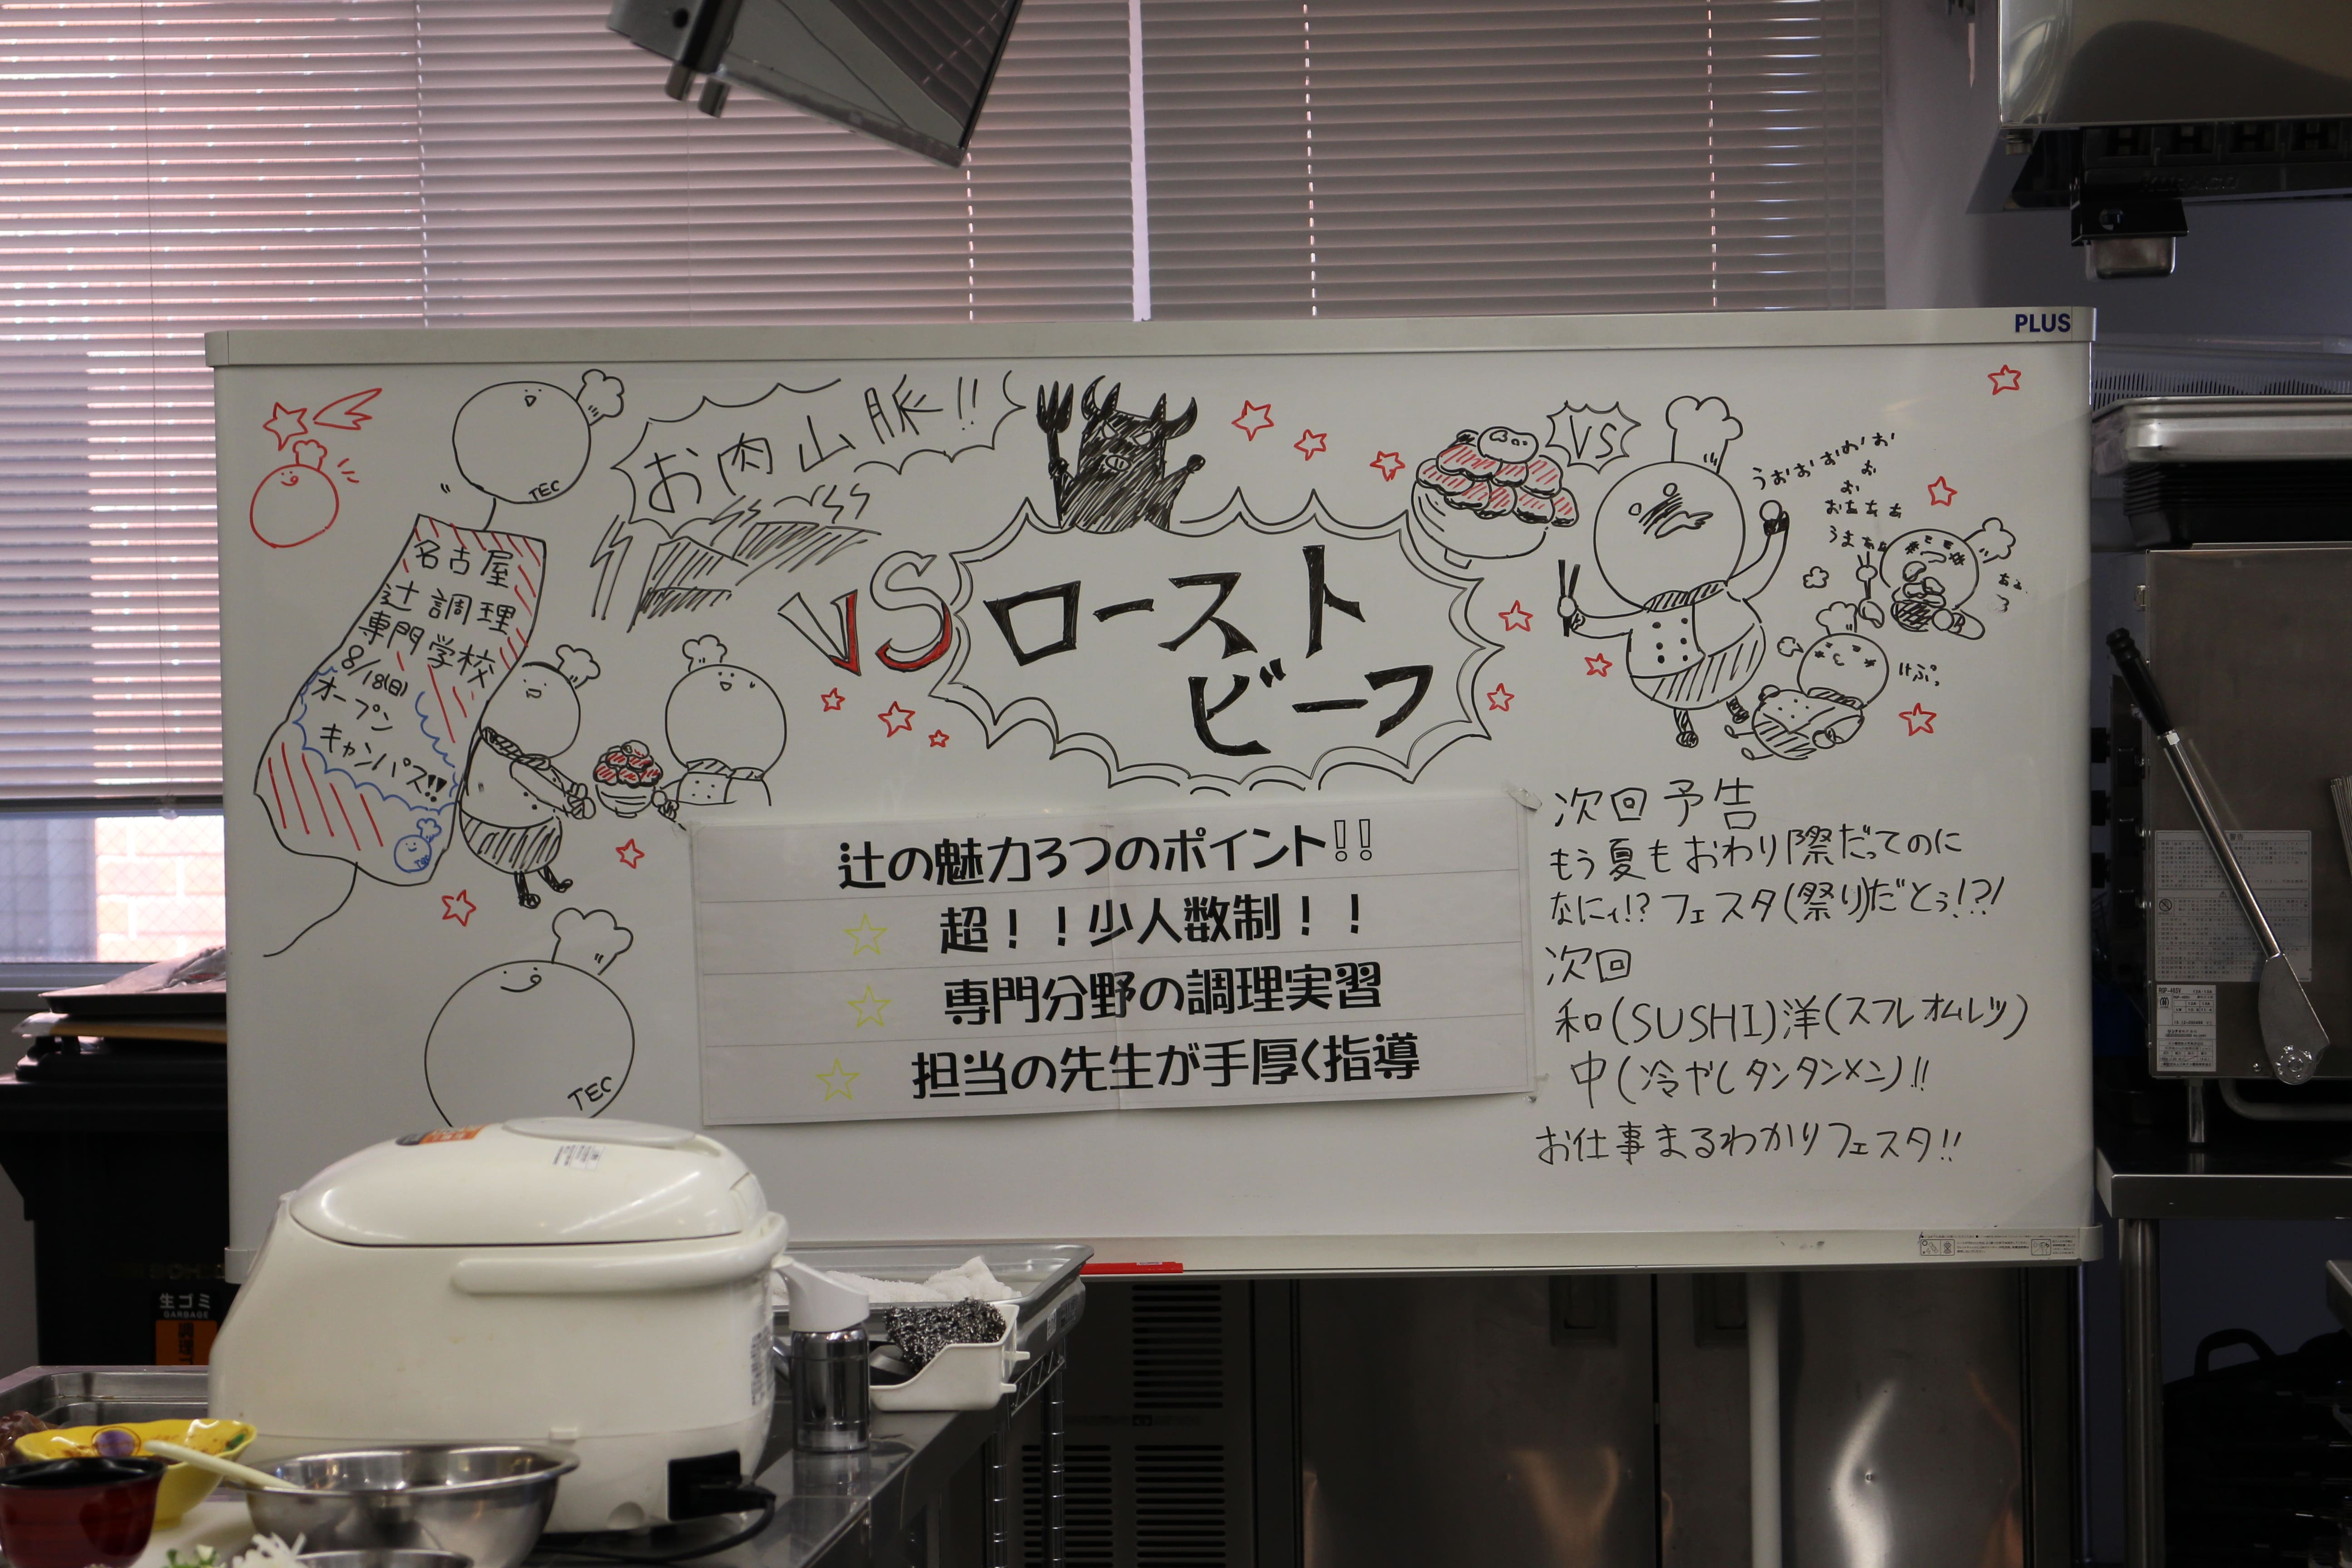 PLUS
お肉山脈!!
TEC
名古屋
辻調理
専門学校
8/18(日)
オープン
キャンパス!!
VS
ロースト
ビーフ
VS
けぷっ
辻の魅力3つのポイント!!
☆ 超！！少人数制！！
☆ 専門分野の調理実習
☆ 担当の先生が手厚く指導
次回予告
もう夏もおわり際だってのに
なにぃ!?フェスタ(祭り)だとぅ!?!
次回
和(SUSHI)洋(スフレオムレツ)
中(冷やしタンタンメン)!!
お仕事まるわかりフェスタ!!
TEC
生ゴミ
GARBAGE